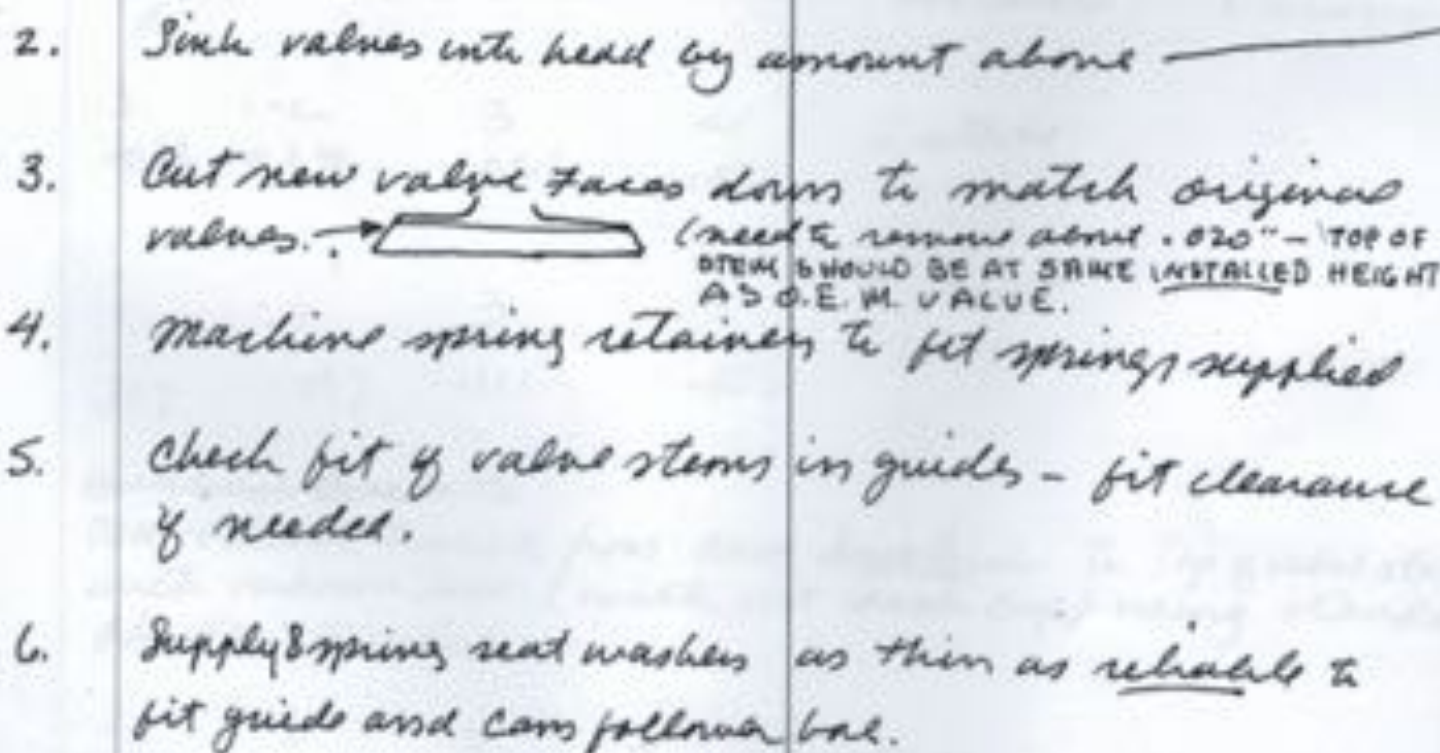 2. Sink valves into head by amount above —
3. Cut new valve faces down to match original
valves. (need to remove about .020" - TOP OF
STEM SHOULD BE AT SAME INSTALLED HEIGHT
AS O.E.M. VALVE.
4. Machine spring retainers to fit springs supplied
5. Check fit of valve stems in guides - fit clearance
if needed.
6. Supply 8 spring seat washers as thin as reliable to
fit guide and cam follower bore.